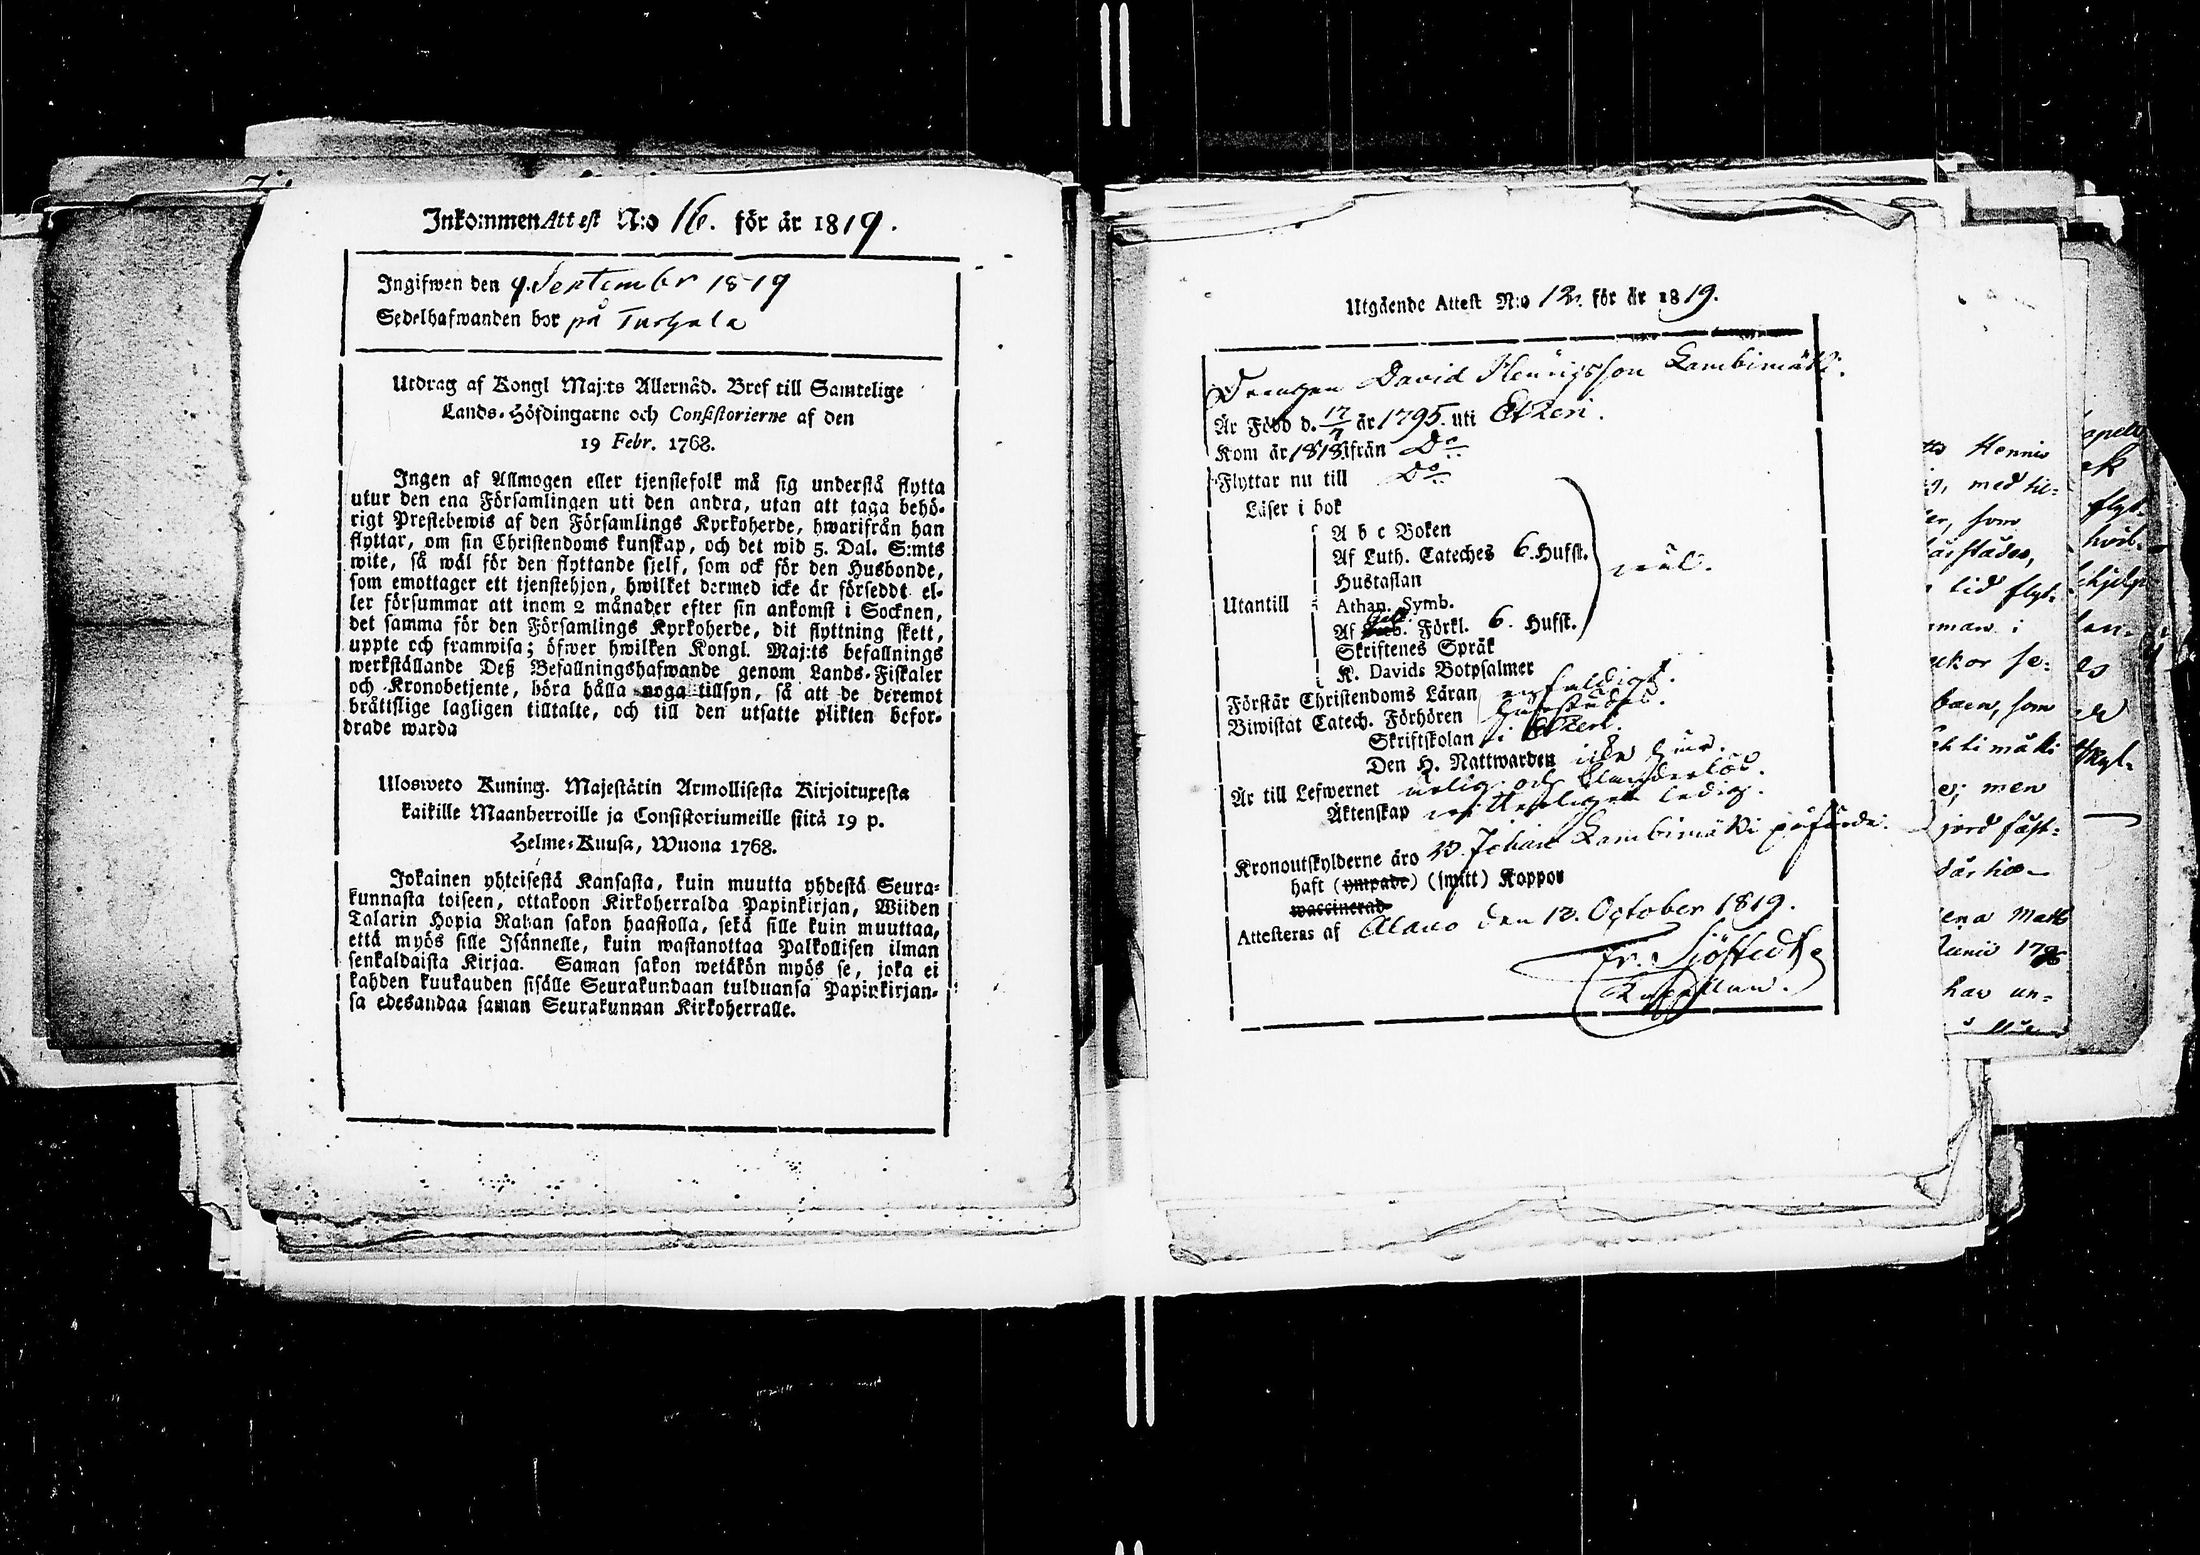 Inkommen Attest N:o 16. för år 1819.
Ingifwen den 9. Septembr 1819
Sedelhafwanden bor på Tuskala
Utdrag af Kongl Maj:ts Allernåd. Bref till Samtelige
Lands-Höfdingarne och Consistorierne af den
19 Febr. 1768.
Ingen af Allmogen eller tjenstefolk må sig understå flytta
utur den ena Församlingen uti den andra, utan att taga behö-
rigt Prestebewis af den Församlings Kyrkoherde, hwarifrån han
flyttar, om sin Christendoms kunskap, och det wid 5. Dal. S:mts
wite, så wäl för den flyttande sjelf, som ock för den Husbonde,
som emottager ett tjenstehjon, hwilket dermed icke är försedt el-
ler försummar att inom 2 månader efter sin ankomst i Socknen,
det samma för den Församlings Kyrkoherde, dit flyttning skett,
uppte och framwisa; öfwer hwilken Kongl. Maj:ts befallnings
werkställande Deß Befallningshafwande genom Lands-Fiskaler
och Kronobetjente, böra hålla noga tillsyn, så att de deremot
bråttslige lagligen tilltalte, och till den utsatte plikten befor-
drade warda
Ulosweto Kuning. Majestätin Armollisesta Kirjoituxesta
kaikille Maanherroille ja Consistoriumeille siitä 19 p.
Helme-Kuusa, Wuona 1768.
Jokainen yhteisestä Kansasta, kuin muutta yhdestä Seura-
kunnasta toiseen, ottakoon Kirkoherralda Papinkirjan, Wiiden
Talarin Hopia Rahan sakon haastolla, sekä sille kuin muuttaa,
että myös sille Isännelle, kuin wastanottaa Palkollisen ilman
senkaldaista Kirjaa. Saman sakon wetäkön myös se, joka ei
kahden kuukauden sisälle Seurakundaan tulduansa Papinkirjan-
sa edesandaa saman Seurakunnan Kirkoherralle.
Utgående Attest N:o 12. för år 1819.
Drengen David Henrigsson Lambimäki.
Är Född d. 17/7 år 1795. uti Etzeri.
Kom år 1818 ifrån Do
Flyttar nu till Do
Läser i bok
A b c Boken
Af Luth. Cateches 6. Hufst.
Hustaflan
wäl.
Utantill
Athan. Symb.
Af Förkl. 6. Hufst.
Skriftenes Språk
K. Davids Botpsalmer
Förstår Christendoms Läran enfaldigt.
Biwistat Catech. Förhören
Skriftskolan i Etzeri.
Den H. Nattwarden icke här.
Är till Lefwernet ärlig och klanderlös.
Äktenskap witterligen ledig.
Kronoutskylderne äro Johan Lambimäki påförde.
haft (ympade) (smitt) Koppor
waccinerad
Attesteras af Alavo den 12. October 1819.
Fr. Sjöstedt
Kapellan.
Hennis
med til-
som
lid flyt-
man i
barn, som
men
jord fäst-
Junii
har un-
flyt-